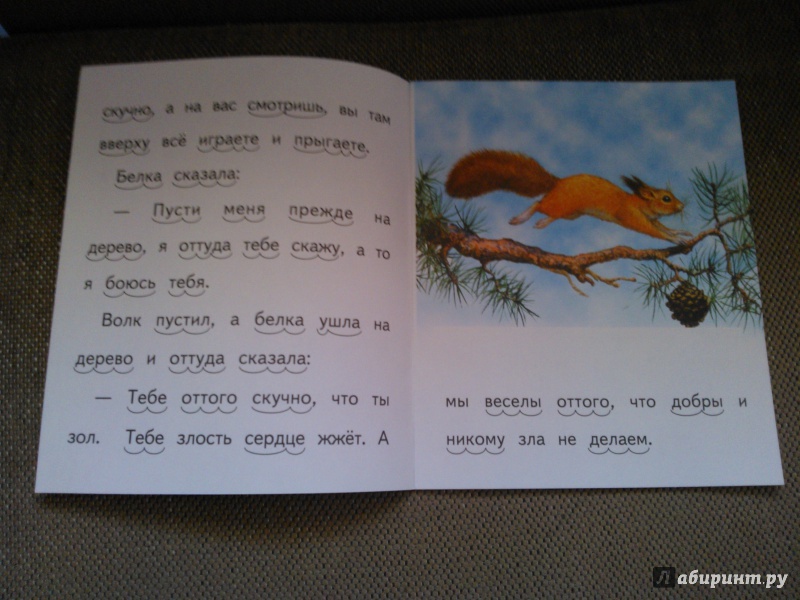 скучно, а на вас смотришь, вы там
вверху всё играете и прыгаете.
Белка сказала:
— Пусти меня прежде на
дерево, я оттуда тебе скажу, а то
я боюсь тебя.
Волк пустил, а белка ушла на
дерево и оттуда сказала:
— Тебе оттого скучно, что ты
зол. Тебе злость сердце жжёт. А
мы веселы оттого, что добры и
никому зла не делаем.
Лабиринт.ру